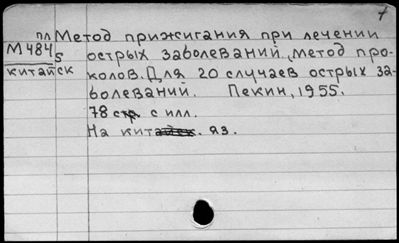 т
пл Метод прижигания при лечении
М484 острых заболеваний. Метод про-
5
китайск колов. Для 20 случаев острых за-
болеваний. Пекин, 1955.
78 стр. с илл.
На китайск. яз.